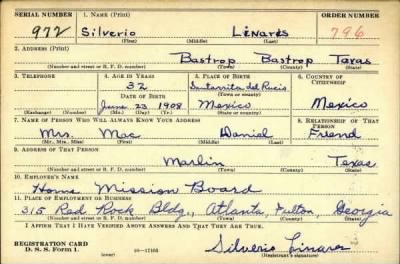 SERIAL NUMBER 1. NAME (Print) ORDER NUMBER
972 Silverio Linares 796
(First) (Middle) (Last)
2. ADDRESS (Print)
Bastrop Bastrop Texas
(Number and street or R. F. D. number) (Town) (County) (State)
3. TELEPHONE 4. AGE IN YEARS 5. PLACE OF BIRTH 6. COUNTRY OF CITIZENSHIP
32
DATE OF BIRTH (Town or county)
June 23 1908 Mexico Mexico
(Exchange) (Number) (Mo.) (Day) (Yr.) (State or country)
7. NAME OF PERSON WHO WILL ALWAYS KNOW YOUR ADDRESS 8. RELATIONSHIP OF THAT PERSON
Mrs. Mac Daniel Friend
(Mr., Mrs., Miss) (First) (Middle) (Last)
9. ADDRESS OF THAT PERSON
Marlin Texas
(Number and street or R. F. D. number) (Town) (County) (State)
10. EMPLOYER'S NAME
Home Mission Board
11. PLACE OF EMPLOYMENT OR BUSINESS
315 Red Rock Bldg., Atlanta, Fulton, Georgia
(Number and street or R. F. D. number) (Town) (County) (State)
I AFFIRM THAT I HAVE VERIFIED ABOVE ANSWERS AND THAT THEY ARE TRUE.
REGISTRATION CARD
D. S. S. Form 1. (over) Silverio Linares
(Registrant's signature)